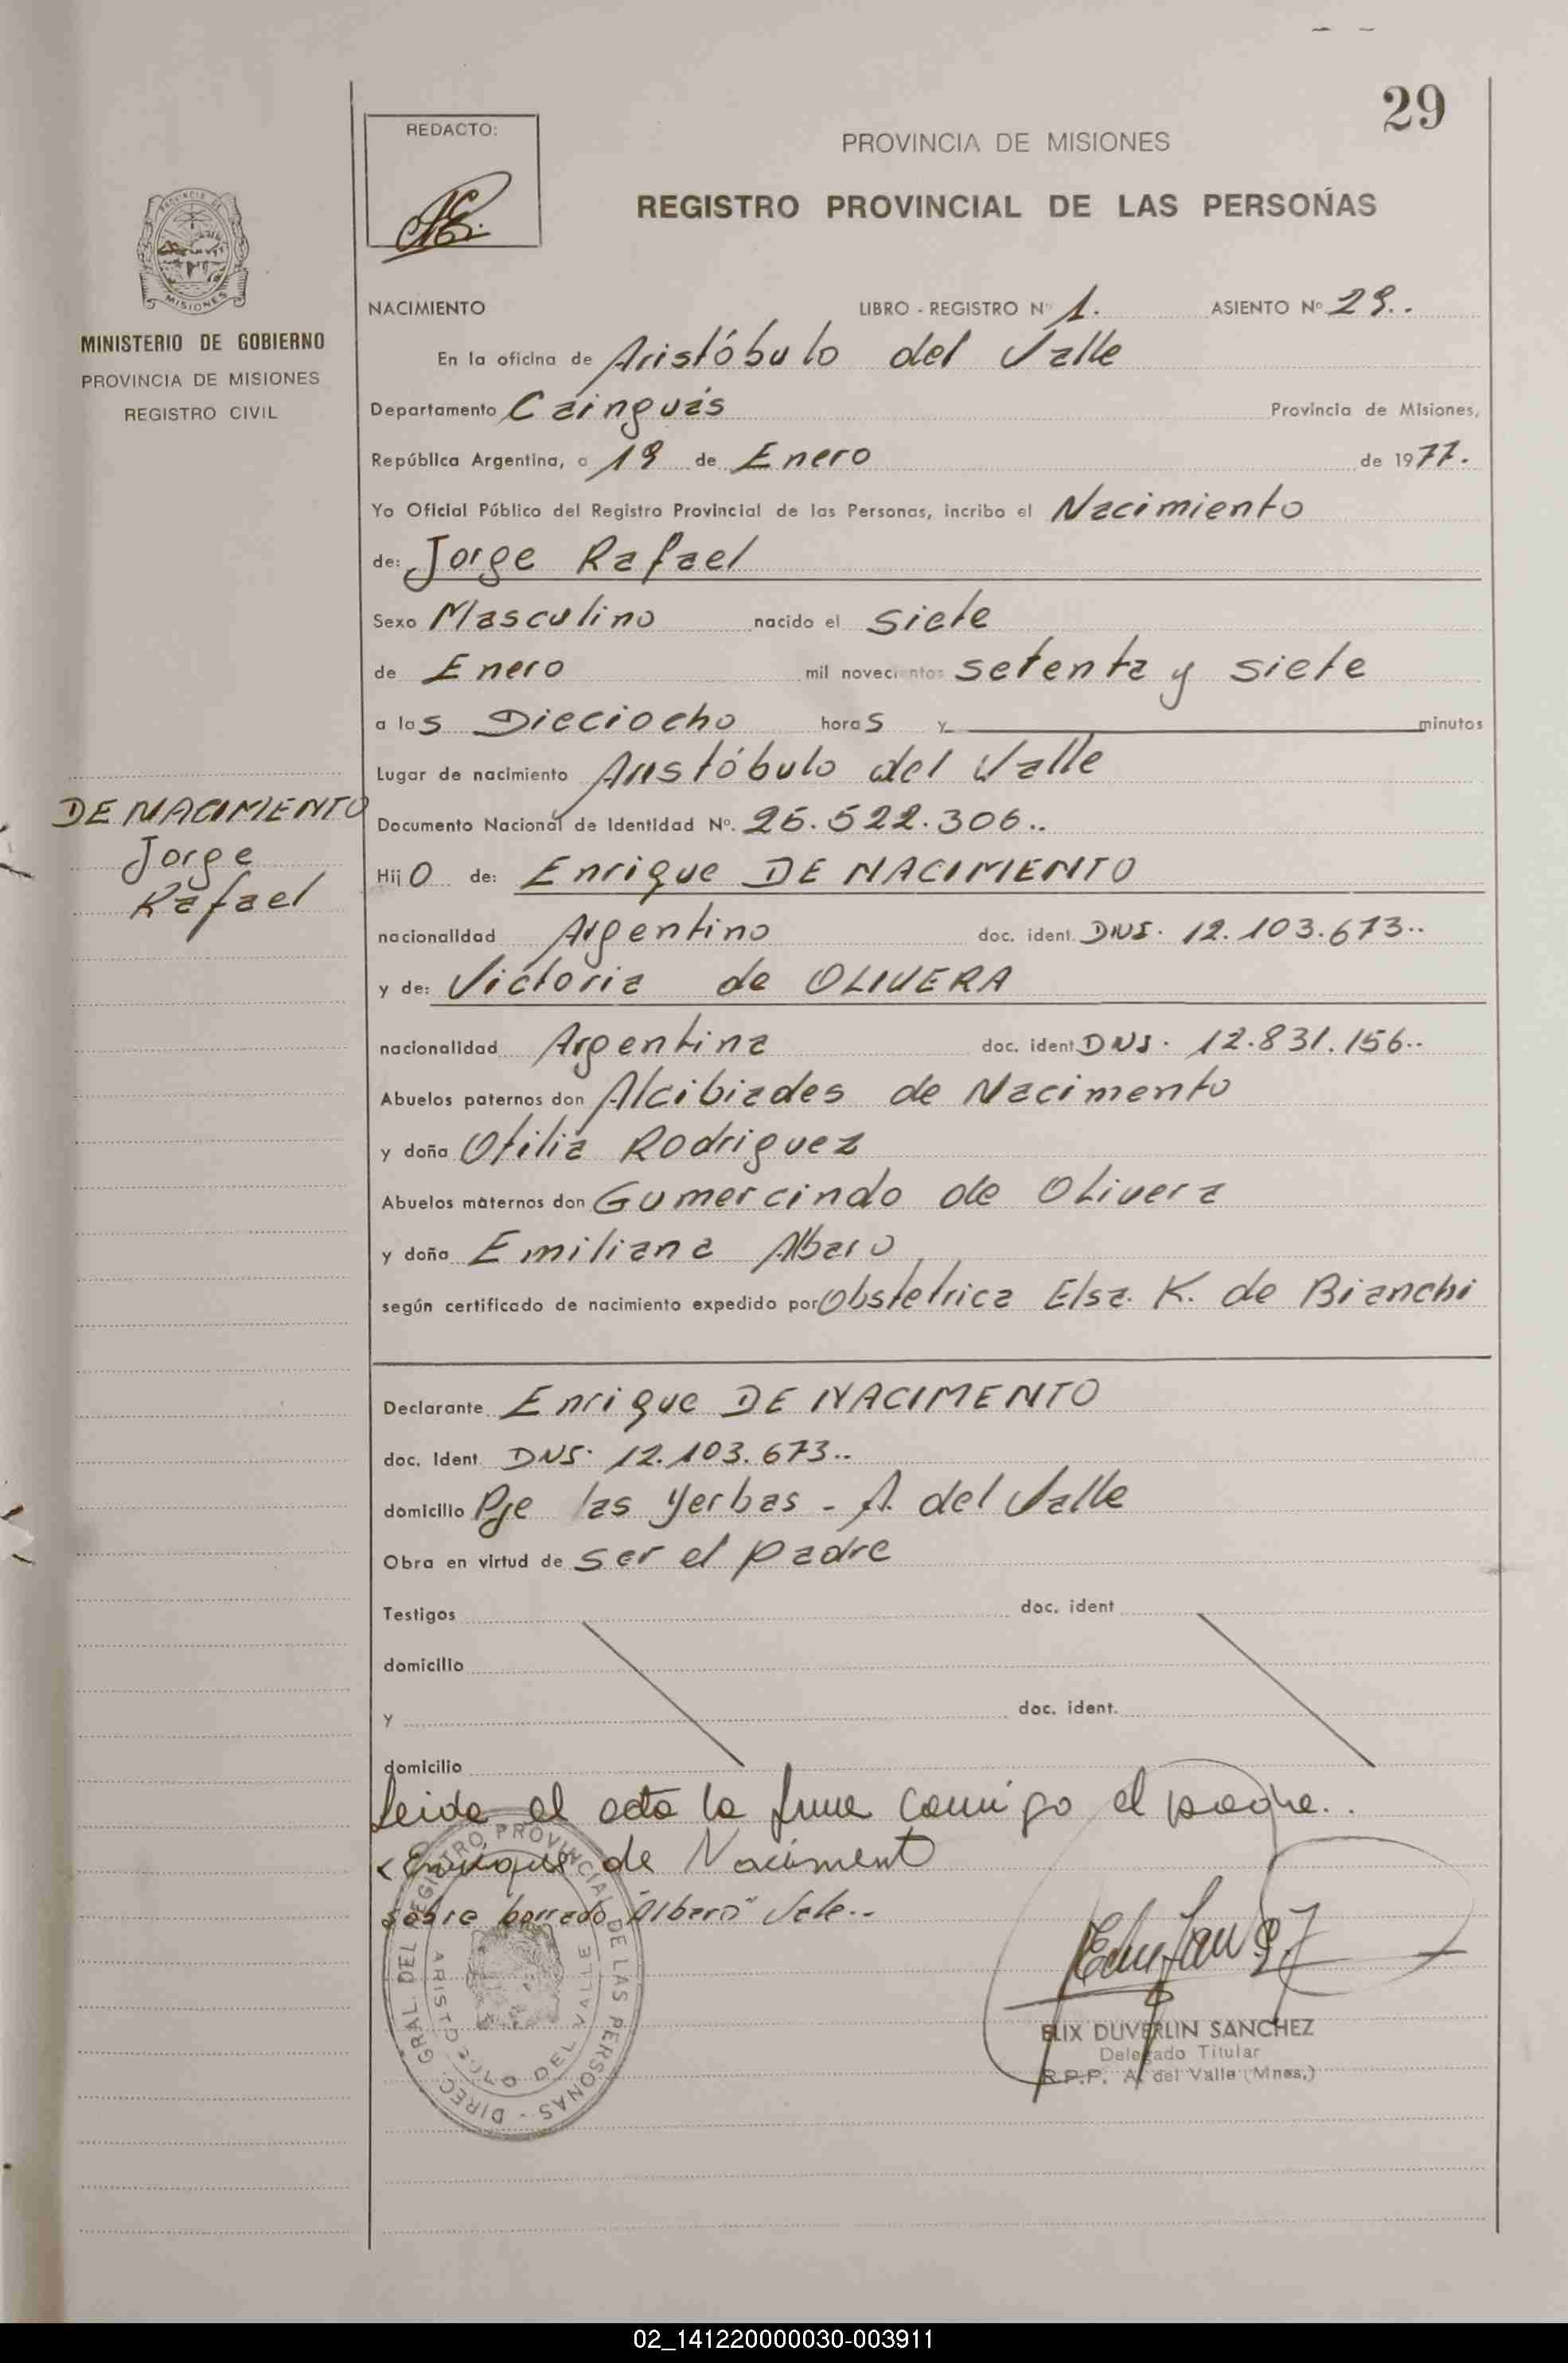 29
REDACTO:
PROVINCIA DE MISIONES
REGISTRO PROVINCIAL DE LAS PERSOÑAS
MISIONES
MINISTERIO DE GOBIERNO
PROVINCIA DE MISIONES
REGISTRO CIVIL
NACIMIENTO LIBRO - REGISTRO Nº 1. ASIENTO Nº 29..
En la oficina de Aristóbulo del Valle
Departamento Cainguás Provincia de Misiones,
República Argentina, a 19 de Enero de 1977.
Yo Oficial Público del Registro Provincial de las Personas, incribo el Nacimiento
de: Jorge Rafael
Sexo Masculino nacido el siete
de Enero mil novecientos setenta y siete
a las Dieciocho horas y minutos
Lugar de nacimiento Aristóbulo del Valle
DE NACIMIENTO
Jorge
Rafael
Documento Nacional de Identidad Nº. 25.522.306..
Hijo de: Enrique DE NACIMIENTO
nacionalidad Argentino doc. ident. DNI. 12.103.673..
y de: Victoria de OLIVERA
nacionalidad Argentina doc. ident DNI. 12.831.156..
Abuelos paternos don Alcibiades de Nacimento
y doña Otilia Rodriguez
Abuelos maternos don Gumercindo de Olivera
y doña Emiliana Albaro
según certificado de nacimiento expedido por Obstetrica Elsa. K. de Bianchi
Declarante Enrique DE NACIMENTO
doc. Ident DNI. 12.103.673..
domicilio Pje las Yerbas - A. del Valle
Obra en virtud de ser el padre
Testigos doc. ident
domicilio
y doc. ident.
domicilio
Leida el acta la firma comigo el padre..
Enrique de Naciment
sobre borrado "Albaro" Vale..
DIREC. GRAL. DEL REGISTRO PROVINCIAL DE LAS PERSONAS -
ARISTOBULO DEL VALLE
ELIX DUVERLIN SANCHEZ
Delegado Titular
R.P.P. A. del Valle (Mnes.)
02_141220000030-003911